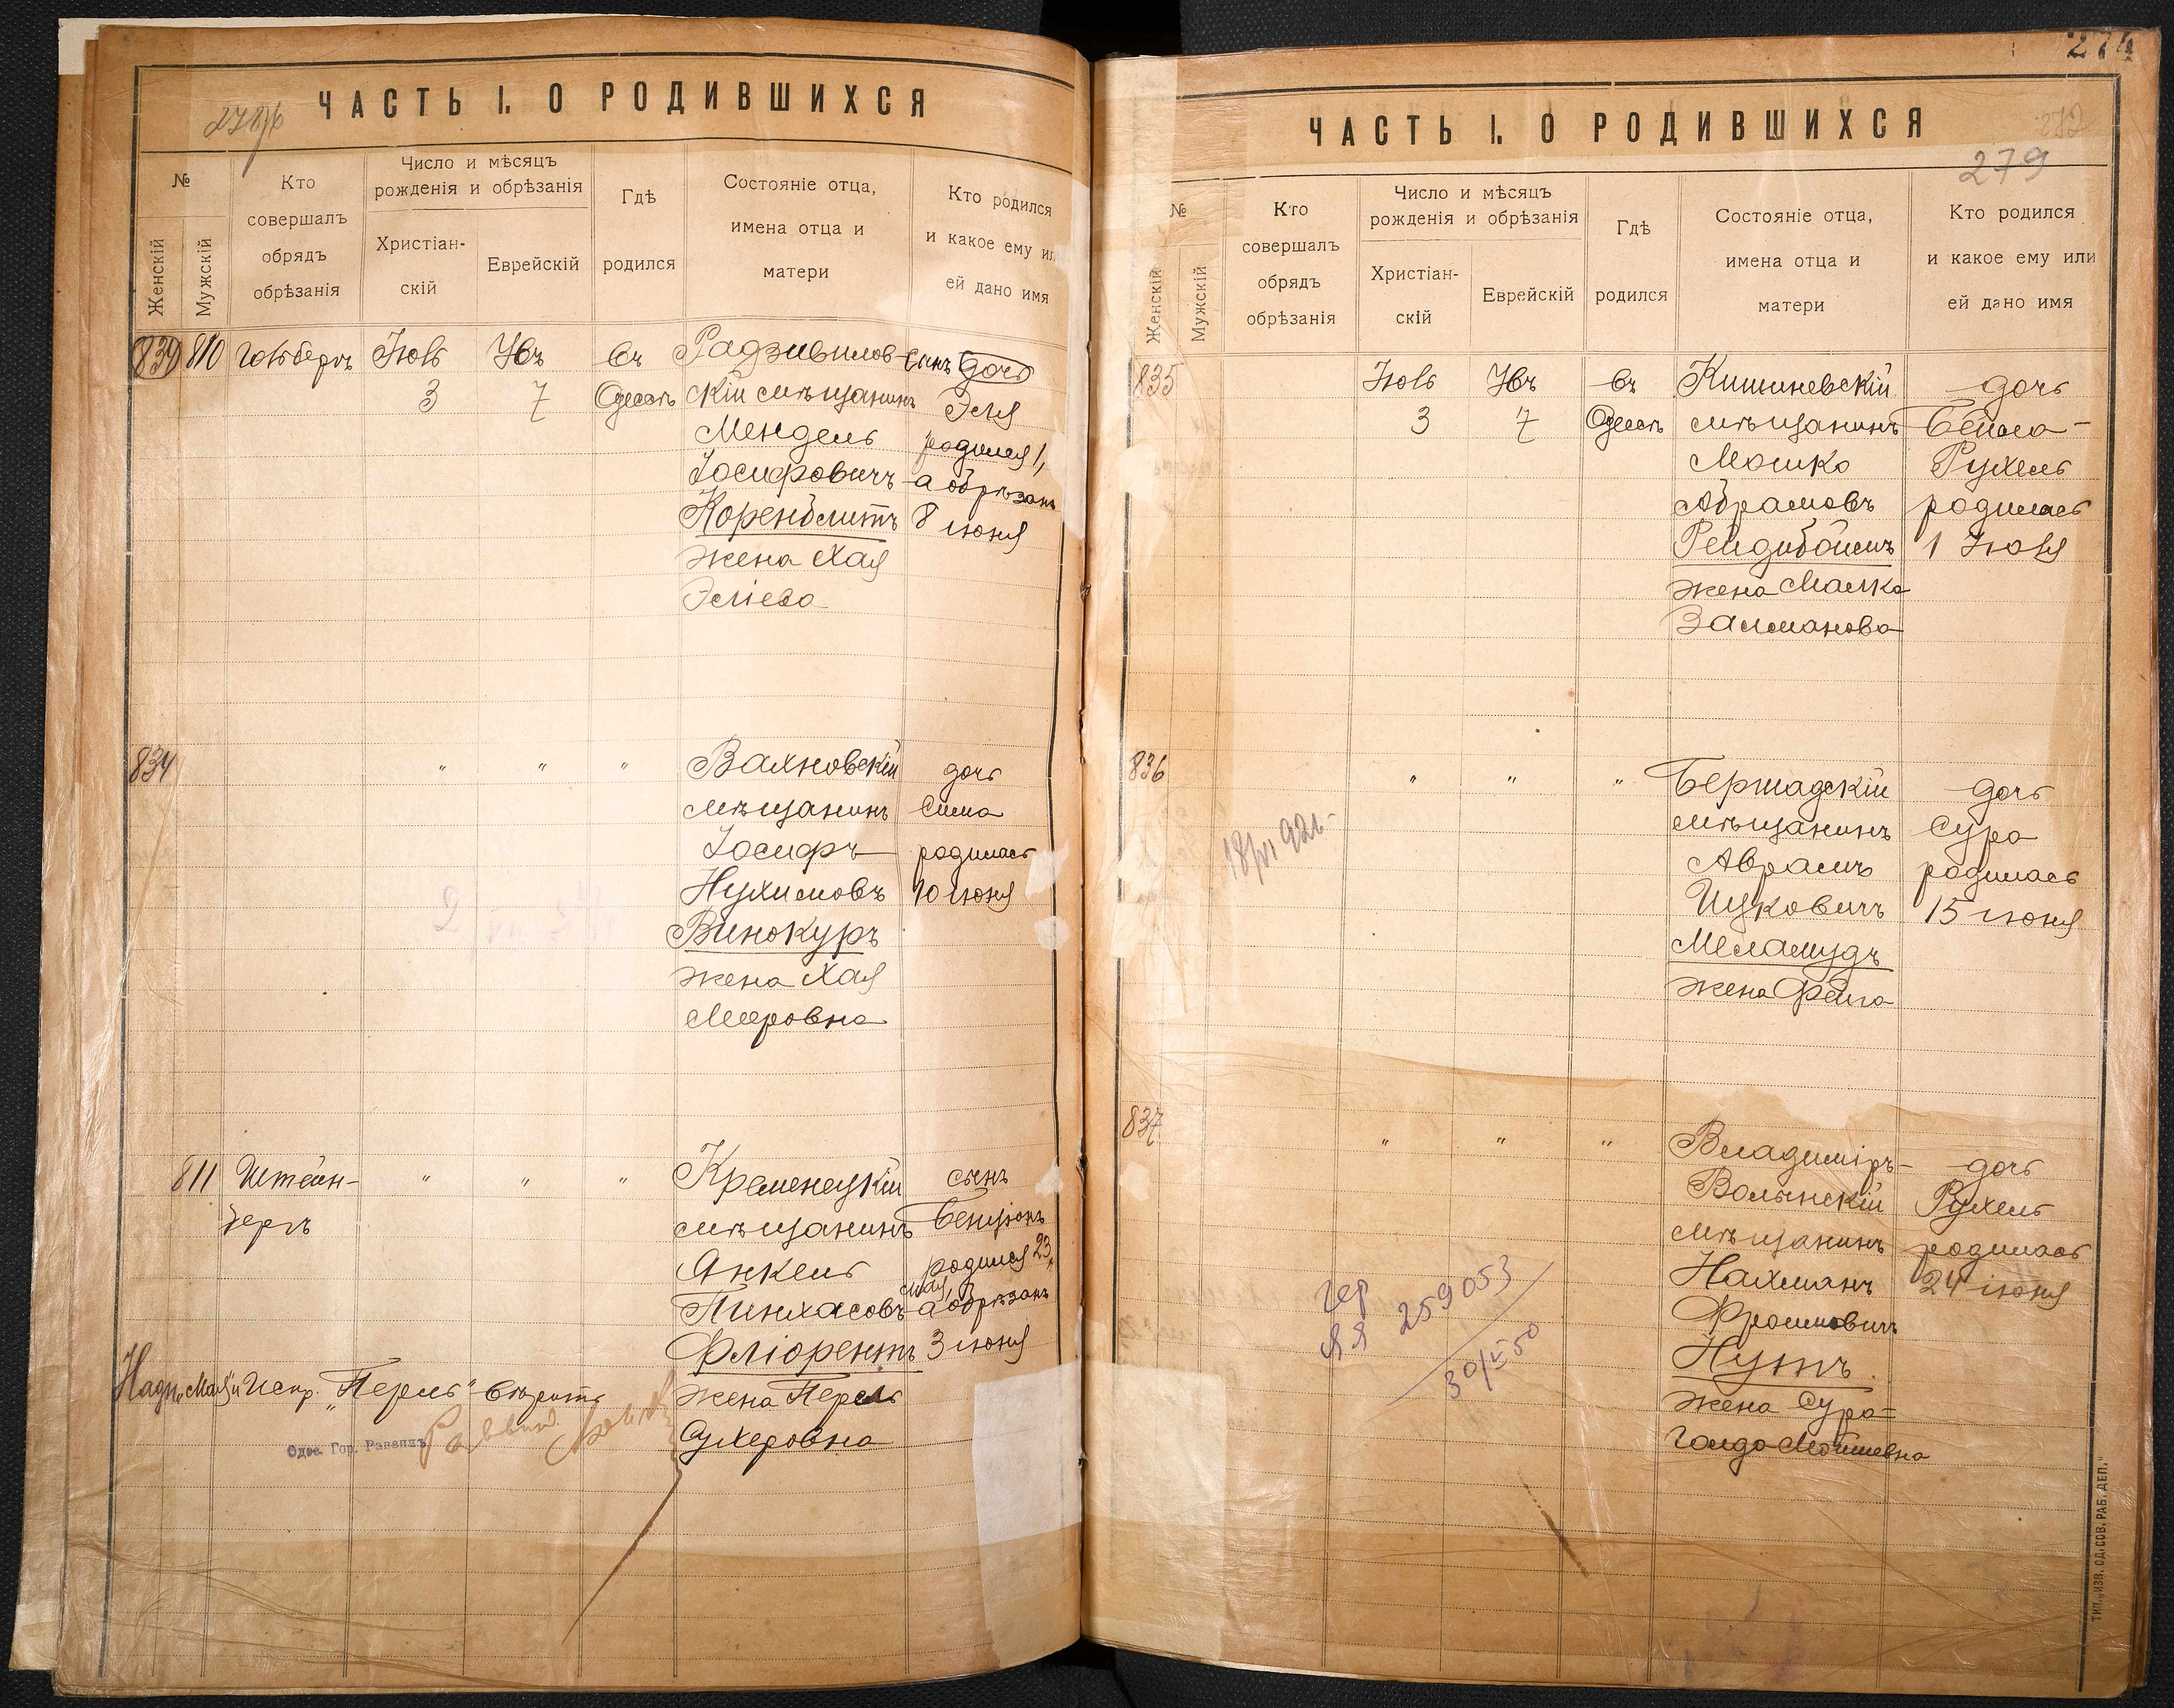 ЧАСТЬ I. О РОДИВШИХСЯ
№
Женскій
Мужскій
Кто
совершалъ
обрядъ
обрѣзанія
Число и мѣсяцъ
рожденія и обрѣзанія
Христіан-
скій
Еврейскій
Гдѣ
родился
Состояніе отца,
имена отца и
матери
Кто родился
и какое ему ил
ей дано имя
839 810 Гольбергъ Іюль 3 Ювъ 7 въ Одессѣ
Радзивилов-
скій мѣщанинъ
Мендель
Іосифовичъ
Коренблитъ
жена Хая
Эліева
сынъ дочь
Эля
родился 1,
а обрѣзанъ
8 іюня
834 " " "
Вахновскій
мѣщанинъ
Іосифъ
Нухимовъ
Винокуръ
жена Хая
Мееровна
дочь
Сима
родилась
10 іюня
811 Штейн-
бергъ
" " "
Кременецкій
мѣщанинъ
Янкель
Пинхасовъ
Фліорентъ
жена Перель
Сухеровна
сынъ
Бенціонъ
родился 23
мая,
а обрѣзанъ
3 іюня
Надп. "Мая" и Испр. "Перель" вѣрить
Одес. Гор. Раввинъ
274
ЧАСТЬ I. О РОДИВШИХСЯ
272
279
№
Женскій
Мужскій
Кто
совершалъ
обрядъ
обрѣзанія
Число и мѣсяцъ
рожденія и обрѣзанія
Христіан-
скій
Еврейскій
Гдѣ
родился
Состояніе отца,
имена отца и
матери
Кто родился
и какое ему или
ей дано имя
835 Іюль 3 Ювъ 7 въ Одессѣ
Кишиневскій
мѣщанинъ
Мошко
Абрамовъ
Рейдибоймъ
жена Малка
Залманова
дочь
Бейла-
Рухель
родилась
1 Іюля
836 " " "
Бершадскій
мѣщанинъ
Аврамъ
Ицковичъ
Меламудъ
жена Фейга
дочь
Сура
родилась
15 іюня
18/VI 92г.
837 " " "
Владиміръ-
Волынскій
мѣщанинъ
Нахманъ
Фроимовичъ
Нутъ
жена Сура=
Голда Мойшевна
дочь
Рухель
родилась
24 іюня
259053
30/X 50
ТИП. „ИЗВ. ОД. СОВ. РАБ. ДЕП."